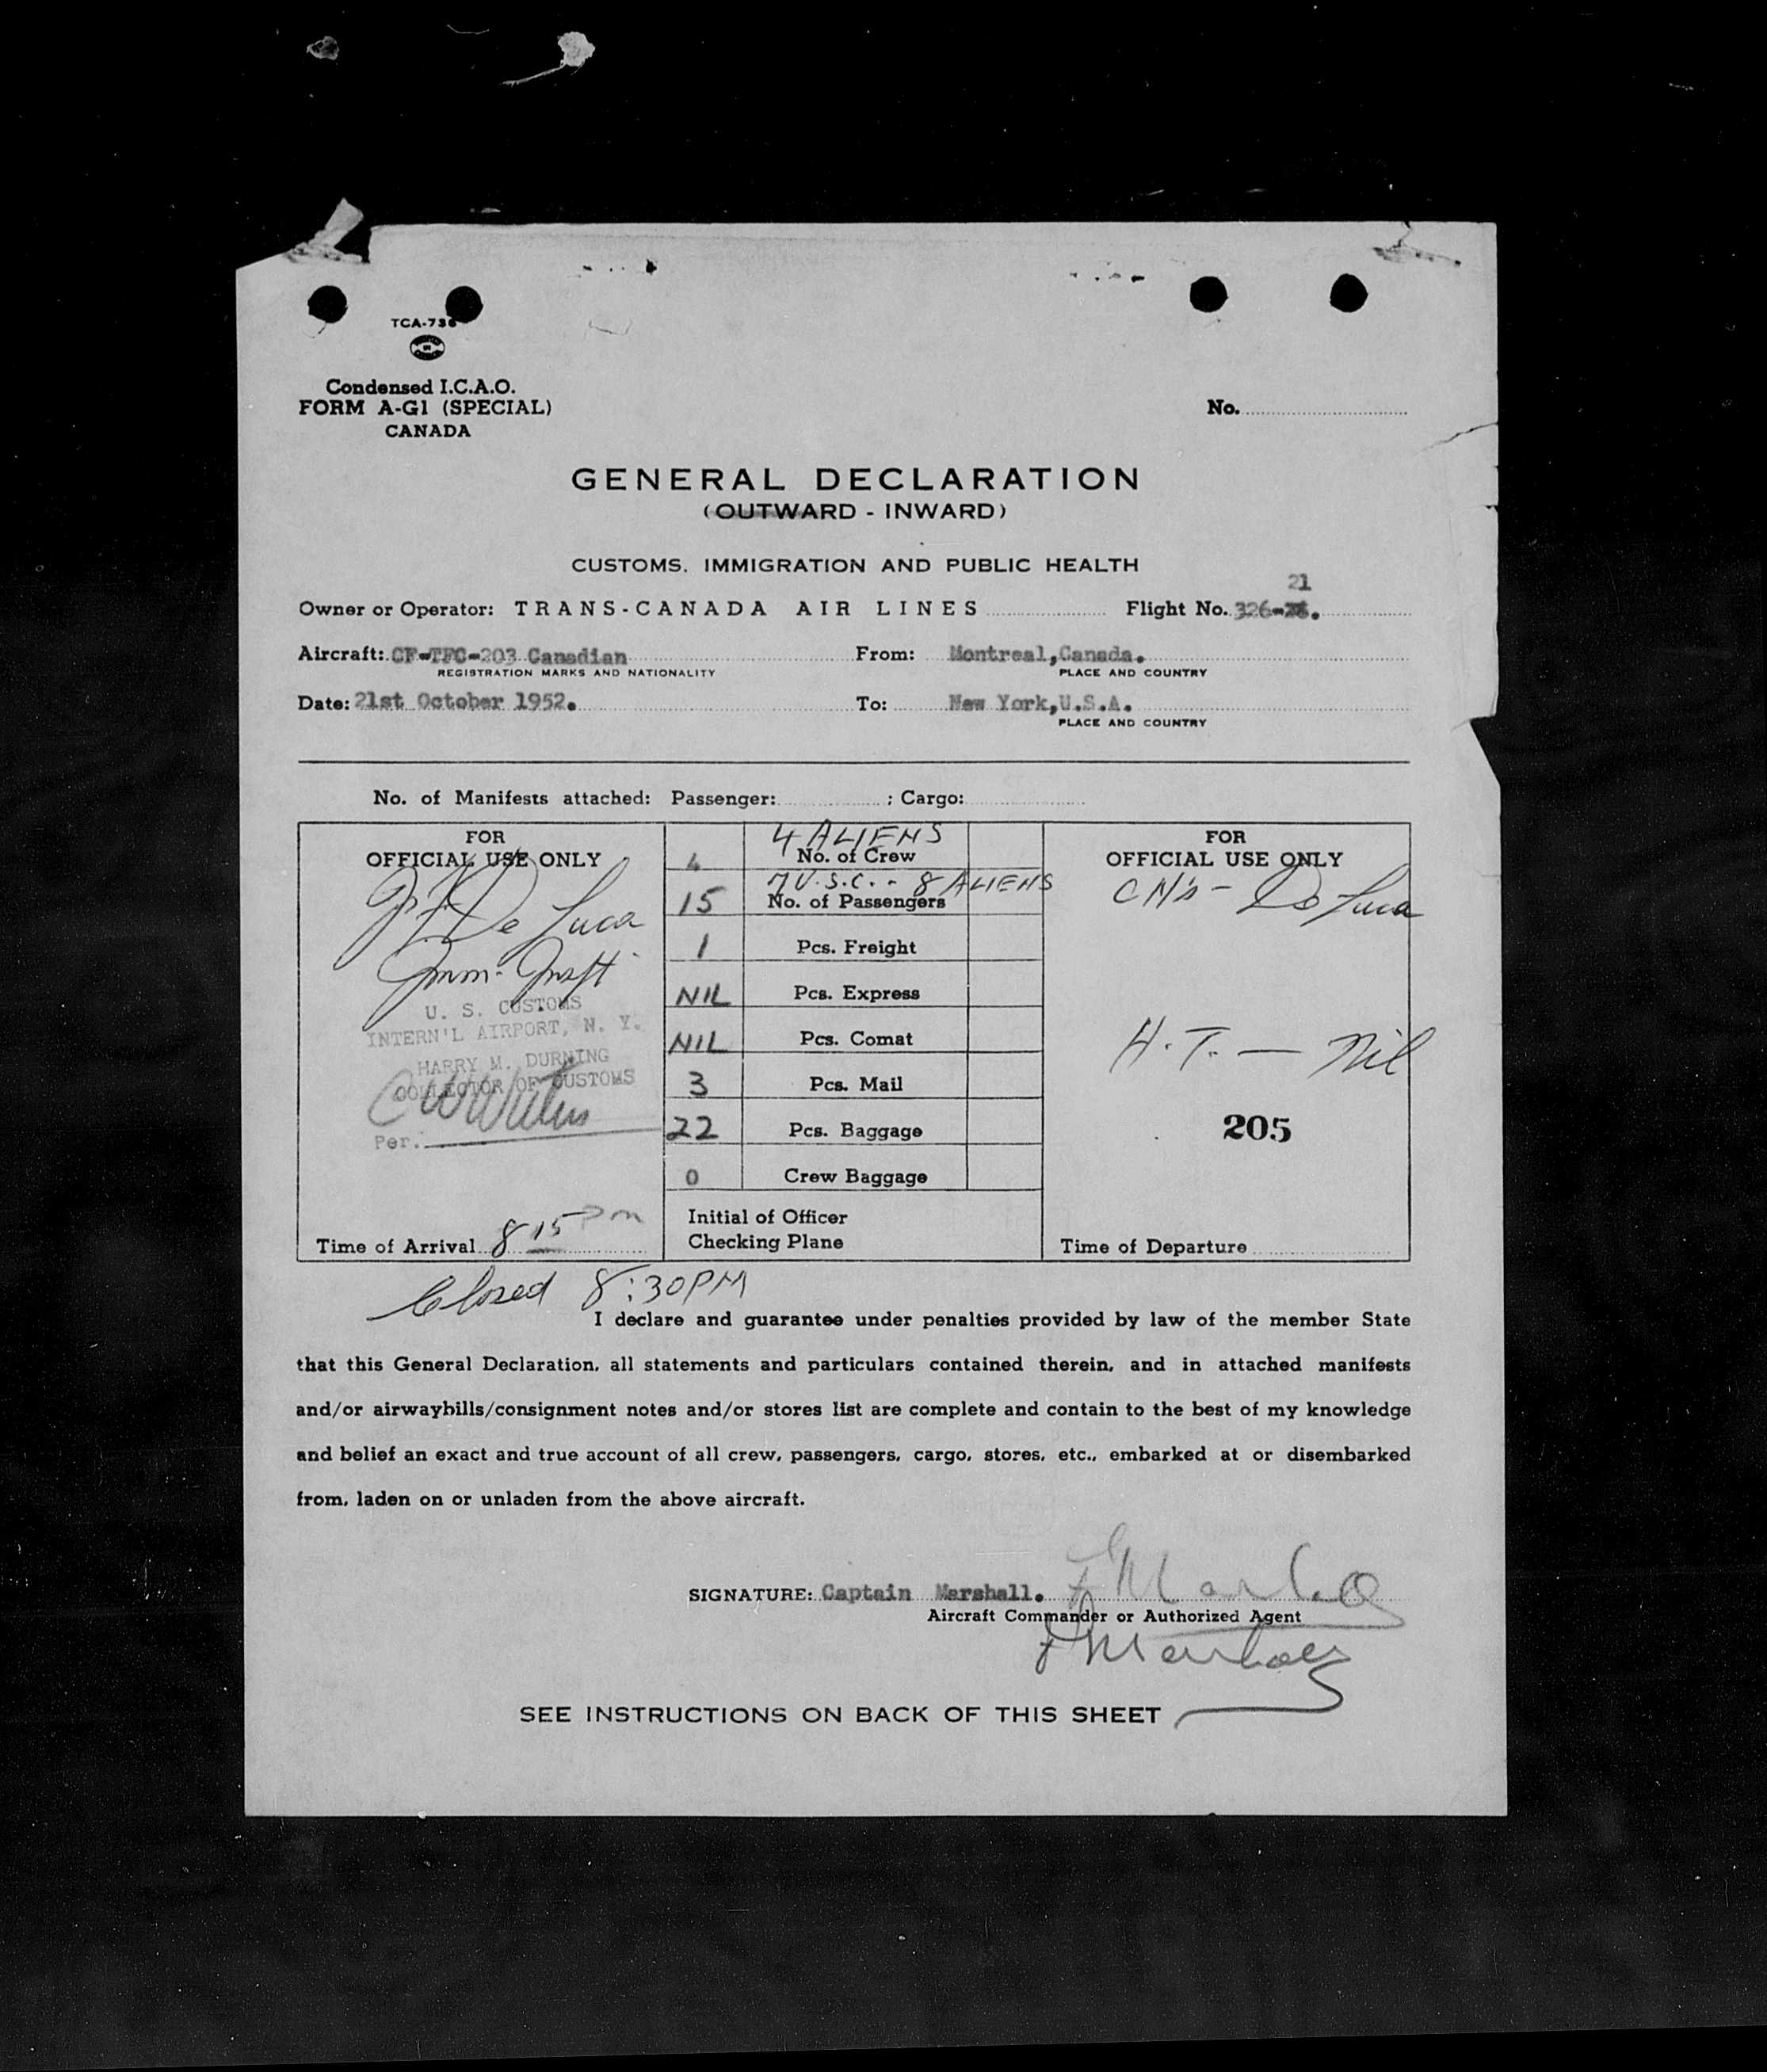 TCA-736
Condensed I.C.A.O.
FORM A-G1 (SPECIAL)
CANADA
No.
GENERAL DECLARATION
(OUTWARD - INWARD)
CUSTOMS, IMMIGRATION AND PUBLIC HEALTH
21
Owner or Operator: TRANS-CANADA AIR LINES Flight No. 326-
Aircraft: CF-TFC-203 Canadian From: Montreal,Canada.
REGISTRATION MARKS AND NATIONALITY PLACE AND COUNTRY
Date: 21st October 1952. To: New York,U.S.A.
PLACE AND COUNTRY
No. of Manifests attached: Passenger: ; Cargo:
FOR
OFFICIAL USE ONLY
De Luca
U. S. CUSTOMS
INTERN'L AIRPORT, N. Y.
HARRY M. DURNING
COLLECTOR OF CUSTOMS
Per.
Time of Arrival 8 15 pm
4 ALIENS
4 No. of Crew
7 U.S.C. - 8 ALIENS
15 No. of Passengers
1 Pcs. Freight
NIL Pcs. Express
NIL Pcs. Comat
3 Pcs. Mail
22 Pcs. Baggage
0 Crew Baggage
Initial of Officer
Checking Plane
FOR
OFFICIAL USE ONLY
De Luca
H.T. - Nil
205
Time of Departure
Closed 8:30PM
I declare and guarantee under penalties provided by law of the member State
that this General Declaration, all statements and particulars contained therein, and in attached manifests
and/or airwaybills/consignment notes and/or stores list are complete and contain to the best of my knowledge
and belief an exact and true account of all crew, passengers, cargo, stores, etc., embarked at or disembarked
from, laden on or unladen from the above aircraft.
SIGNATURE: Captain Marshall.
Aircraft Commander or Authorized Agent
SEE INSTRUCTIONS ON BACK OF THIS SHEET